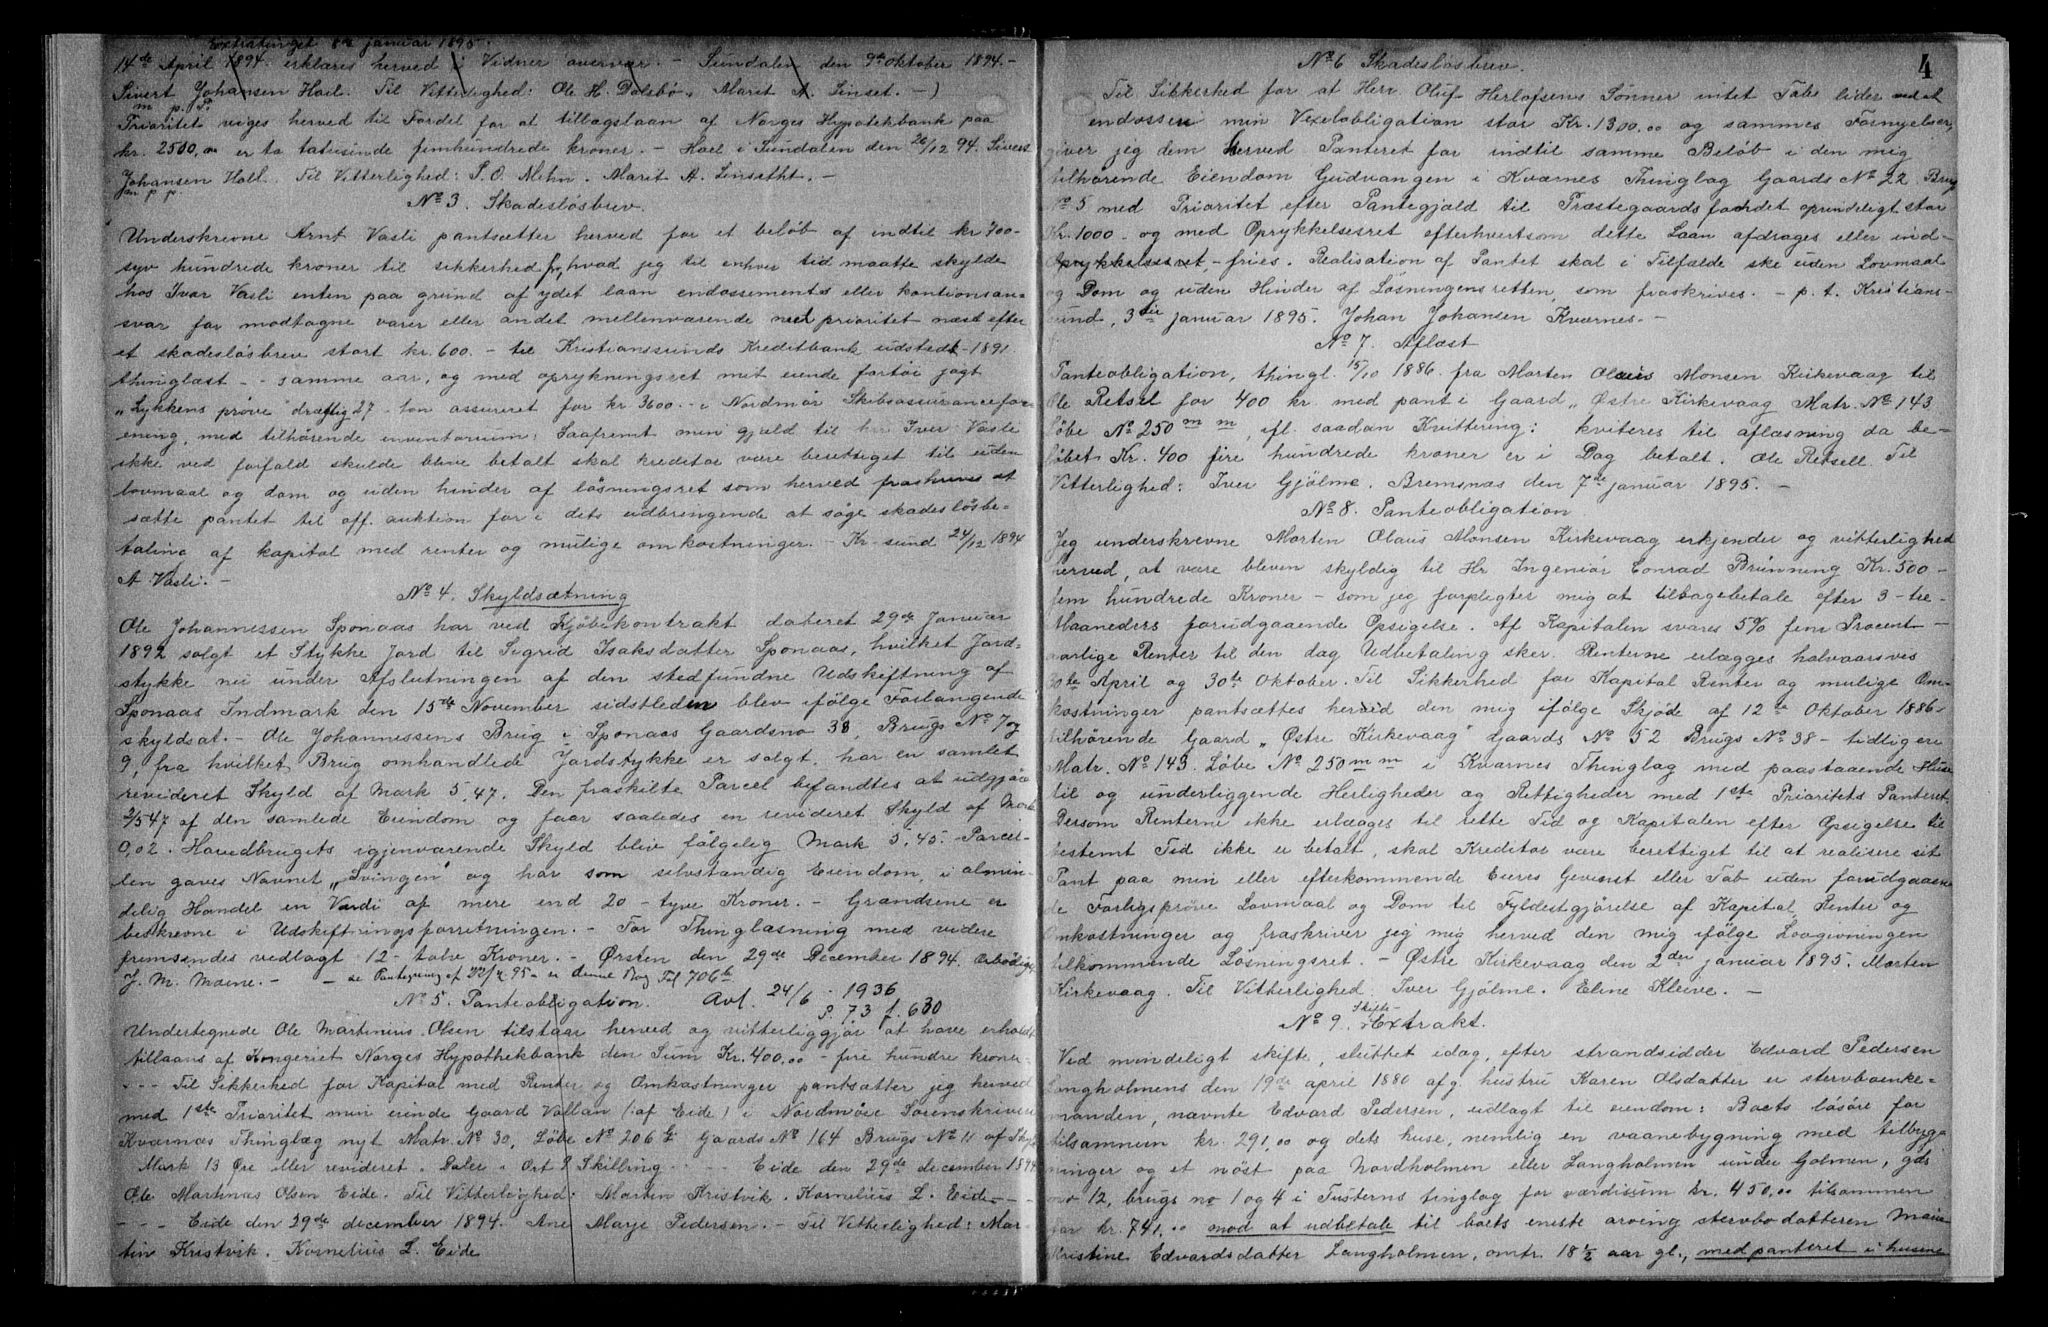 Extratinget 8de januar 1895.
14de April 1894 erklæres herved i Vidner overvær. - Sundalen den 9de oktober 1894. -
Sivert Johansen Hoel. Til Vitterlighed: Ole H. Dalsbø. Marit A. Linset. -)
m. p. P.
Prioritet viges herved til Fordel for et tillægslaan af Norges Hypothekbank paa
kr. 2500,00 er to tatusinde femhundrede kroner. - Hoel i Sundalen den 26/12 94. Sivert
Johansen Holl. Til Vitterlighed: P. O. Mehn. Marit A. Linsetht. -
m p p.
No 3. Skadesløsbrev.
Underskrevne Arnt Vasli pantsætter herved for et beløb af indtil kr 700-
syv hundrede kroner til sikkerhed for, hvad jeg til enhver tid maatte skylde
hos Ivar Vasli enten paa grund af ydet laan endossements eller kautionsan-
svar for modtagne varer eller andet mellenværende med prioritet næst efter
et skadesløsbrev stort kr. 600. - til Kristianssunds Kreditbank udstedt - 1891
thinglæst - - samme aar, og med oprykningsret mit eiende fartøi jagt
"Lykkens prøve" drægtig 27. ton assureret for kr 3600. - i Nordmør Skibsassurancefor-
ening, med tilhørende inventarium: Saafremt min gjæld til Iver Vasli
ikke ved forfald skulde blive betalt skal kreditor være berettiget til uden
lovmaal og dom og uden hinder af løsningsret som herved fraskrives at
sætte pantet til off. auktion for i dets udbringende at søge skadesløsbe-
taling af kapital med renter og mulige omkostninger. - Kr-sund 24/12 1894
A Vasli. -
No 4. Skyldsætning
Ole Johannessen Sponaas har ved Kjøbekontrakt dateret 29de Januar
1892 solgt et Stykke Jord til Sigrid Isaksdatter Sponaas, hvilket Jord-
stykke nu under Afslutningen af den stedfundne Udskiftning af
Sponaas Indmark den 15de November sidstleden blev ifølge Forlangende
skyldsat. - Ole Johannessens Brug i Sponaas Gaardsno 33, Brugs No 7 og
9, fra hvilket Brug omhandlede Jordstykke er solgt, har en samlet
revideret Skyld af Mark 5,47. Den fraskilte Parcel befandtes at udgjøre
2/547 af den samlede Eiendom og faar saaledes en revideret Skyld af Mark
0,02. Hovedbrugets igjenværende Skyld bliv følgelig Mark 5,45. Parcel-
len gaves Navnet "Svingen" og har som selvstændig Eiendom i almin-
delig Handel en Værdi af mere end 20 - tyve Kroner. - Grændsene er
beskrevne i Udskiftningsforretningen. - For Thinglæsning med videre
fremsendes vedlagt 12 - tolv Kroner. - Ørsten den 29de December 1894. Ærbødigst
J. M. Moene. - - se Pantegning af 22/4 95 - i denne Bog Fol 706b
No 5. Panteobligation. Avl. 24/6 - 1936
P. 73 f. 630
Undertegnede Ole Martinius Olsen tilstaar herved og vitterliggjør at have erholdt
tillaans af Kongeriet Norges Hypothekbank den Sum Kr. 400,00 - fire hundre kroner
- - - Til Sikkerhed for Kapital med Renter og Omkostninger pantsætter jeg herved
med 1ste Prioritet min eiende Gaard Vollan (af Eide) i Nordmøre Sorenskriveri
Kværnæs Thinglæg nyt Matr. No 30, Løbe No 206 g Gaards No 164 Brugs No 11 af Skyld
Mark 13 Øre eller revideret. Daler. Ort 9 Skilling. - - - Eide den 29de december 1894
Ole Martinas Olsen Eide. Til Vitterleghed: Martin Kristvik. Kornelius L. Eide - - -
- - - Eide den 29de december 1894. Ane Marje Pedersen. - Til Vitterlighed: Mar-
tin Kristvik. Kornelius L. Eide
4
No 6 Skadesløsbrev.
Til Sikkerhed for at Herr Oluf Herlofsens Sønner intet Tabe lider ved at
endossere min Vexelobligation stor Kr. 1300,00 og sammes Fornyelser,
giver jeg dem herved Panteret for indtil samme Beløb i den mig
tilhørende Eiendom Gudvangen i Kværnes Thinglag Gaards No 22 Brug
No 5 med Prioritet efter Pantegjæld til Præstegaardsfondet oprindeligt stor
Kr. 1000 - og med Oprykkelsesret efterhvertsom dette Laan afdrages eller ind-
Oprykkelsesret, - fries. Realisation af Pantet skal i Tilfælde ske uden Lovmaal
og Dom og uden Hinder af Løsningensretten, som fraskrives. - p. t. Kristians-
sund, 3die januar 1895. Johan Johansen Kværnes. -
No 7. Aflæst
Panteobligation, thingl. 15/10 1886 fra Morten Olaus Monsen Kirkevaag til
Ole Retsel for 400 kr. med pant i Gaard "Østre Kirkevaag Matr. No 143
Løbe No 250 m m, ifl. saadan Kvittering: kviteres til aflæsning da be-
løbet Kr. 400 fire hundrede kroner er i Dag betalt. Ole Retsell. Til
Vitterlighed: Iver Gjølme. Bremsnæs den 7de januar 1895. -
No 8. Panteobligation.
Jeg underskrevne Morten Olaus Monsen Kirkevaag erkjender og vitterlighed
herved, at være bleven skyldig til Hr Ingeniør Conrad Brünning Kr. 500 -
fem hundrede Kroner - som jeg forpligter mig at tilbagebetale efter 3 - tre -
Maaneders forudgaaende Opsigelse. Af Kapitalen svares 5% fem Procent -
aarlige Renter til den dag Udbetaling sker. Renterne erlægges halvaarsves
30te April og 30te Oktober. Til Sikkerhed for Kapital Renter og mulige Om-
kostninger pantsættes herved den mig ifølge Skjøde af 12te Oktober 1886
tilhørende Gaard "Østre Kirkevaag" Gaards No 52 Brugs No 38 - tidligere
Matr. No 143 Løbe No 250 m m i Kværnes Thinglag med paastaaende Huse
til og underliggende Herligheder og Rettigheder med 1ste Prioritets Panteret.
Dersom Renterne ikke erlægges til rette Tid og Kapitalen efter Opsigelse til
bestemt Tid ikke er betalt, skal Kreditor være berettiget til at realisere sit
Pant paa min eller efterkommende Eieres Gevinst eller Tab uden forudgaaen-
de Forligsprøve Lovmaal og Dom til Fyldestgjørelse af Kapital, Renter og
Omkostninger og fraskriver jeg mig herved den mig ifølge Lovgivningen
tilkommende Løsningsret. - Østre Kirkevaag den 2den januar 1895. Morten
Kirkevaag. Til Vitterlighed: Iver Gjølme. Eline Kleive. -
No 9. Skifte-Extrakt.
Ved mindeligt skifte, sluttet idag, efter strandsidder Edvard Pedersen
Langholmens den 19de april 1880 afg. hustru Karen Olsdatter er stervboenke-
manden, nævnte Edvard Pedersen, udlagt til eiendom: Boets løsøre for
tilsammen kr. 291,00 og dets huse, nemlig en vaanebygning med tilbyg-
ninger og et nøst paa Nordholmen eller Langholmen under Golmen, gds
no 12, brugs no 1 og 4 i Tusterns tinglag for værdisum kr. 450,00 tilsammen
for kr. 741,00 mod at udbetale til boets eneste arving stervbodatteren Maria
Kristine Edvardsdatter Langholmen, omtr. 18 1/2 aar gl., med panteret i husene